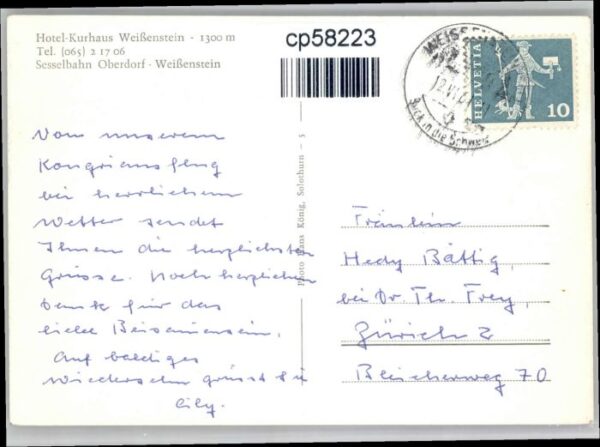 Hotel-Kurhaus Weißenstein - 1300 m
Tel. (065) 2 17 06
Sesselbahn Oberdorf - Weißenstein
cp58223
WEISSEN
12.VI.6
Blick in die Schweiz
HELVETIA
10
Photo Hans König, Solothurn - 5
Von unserem
Kongriansflug
bei herrlichem
Wetter sendet
Ihnen die herzlichsten
Grüsse. Noch herzlichen
Dank für das
liebe Beisammensein.
Auf baldiges
Wiedersehn grüsst Sie
Cily.
Fräulein
Hedy Bättig,
bei Dr. Th. Frey,
Zürich 2
Bleicherweg 70